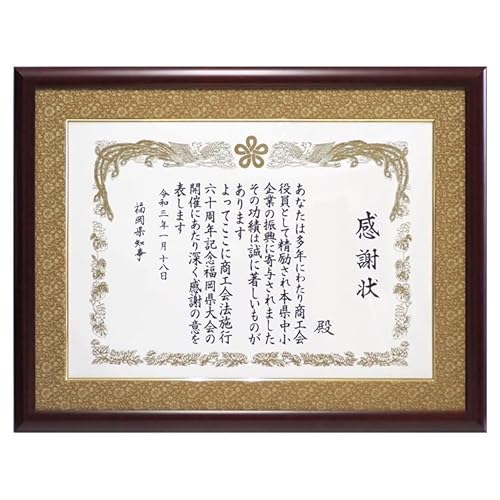 感謝状
殿
あなたは多年にわたり商工会
役員として精励され本県中小
企業の振興に寄与されました
その功績は誠に著しいものが
あります
よってここに商工会法施行
六十周年記念福岡県大会の
開催にあたり深く感謝の意を
表します
令和三年一月十八日
福岡県知事